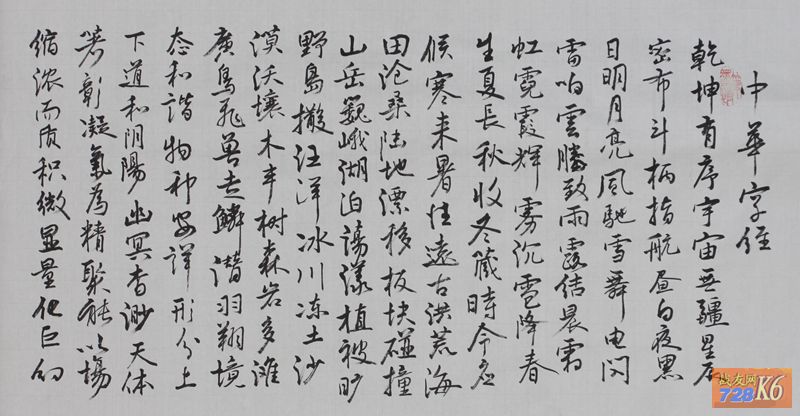 中華字經
乾坤有序宇宙无疆星辰
密布斗柄指航昼白夜黑
日明月亮風馳雪舞电闪
雷响雲騰致雨露结晨霜
虹霓霞輝雾沉雹降春
生夏長秋收冬藏時令应
候寒来暑往遠古洪荒海
田沧桑陆地漂移板块碰撞
山岳巍峨湖泊蕩漾植被旷
野島撒汪洋冰川冻土沙
漠沃壤木丰树森岩多滩
廣鸟飛兽走鱗潜羽翔境
态和諧物种安詳形分上
下道和阴陽幽冥杳渺天体
著彰凝氣為精聚能以場
缩浓而质积微显量化巨幻
战友网
728 K6